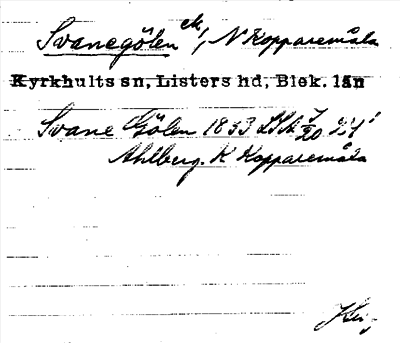 Svanegölen ek!, N Kopparemåla
Kyrkhults sn, Listers hd, Blek. län
Svane Gölen 1833 LSA
Ahlberg. K Kopparemåla